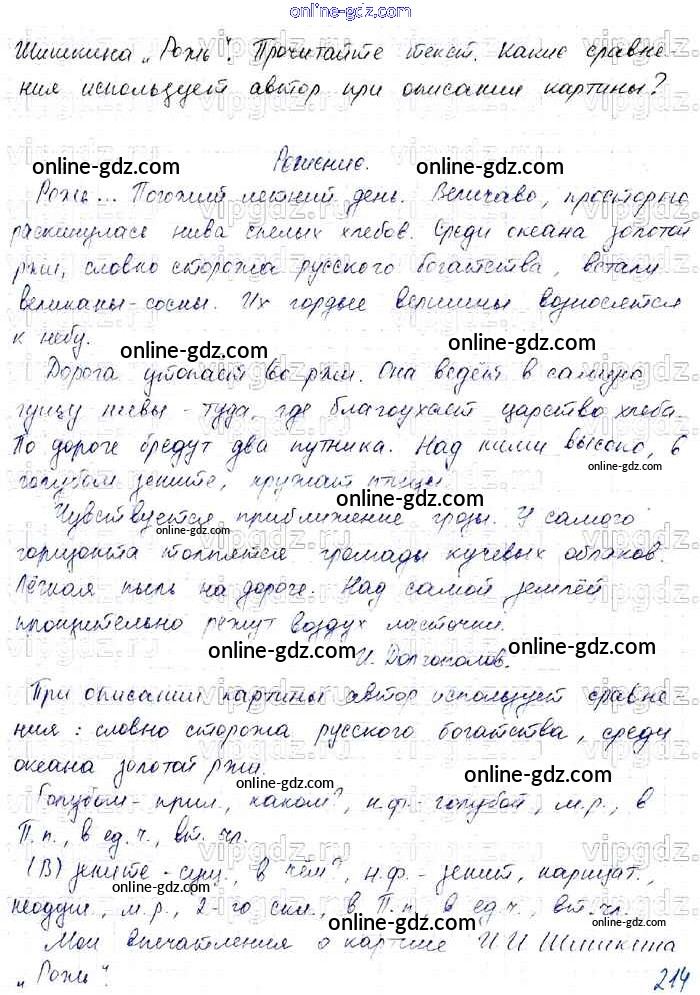 online-gdz.com
Шишкина „Рожь". Прочитайте текст. Какие сравне-
ния использует автор при описании картины?
Решение.
Рожь... Погожий летний день. Величаво, просторно
раскинулась нива спелых хлебов. Среди океана золотой
ржи, словно сторожа русского богатства, встали
великаны-сосны. Их гордые вершины возносятся
к небу.
Дорога утопает во ржи. Она ведёт в самую
гущу нивы - туда, где благоухает царство хлеба.
По дороге бредут два путника. Над ними высоко, в
голубом зените, кружат птицы.
Чувствуется приближение грозы. У самого
горизонта толпятся громады кучевых облаков.
Лёгкая пыль на дороге. Над самой землёй
пронзительно режут воздух ласточки.
И. Долгополов.
При описании картины автор использует сравне-
ния: словно сторожа русского богатства, среди
океана золотой ржи.
Голубом - прил., каком?, н.ф.- голубой, м.р., в
П.п., в ед.ч., вт. чл.
(В) зените - сущ., в чём?, н.ф. - зенит, нарицат.,
неодуш., м.р., 2-го скл., в П.п., в ед.ч., вт.чл.
Мои впечатления о картине И.И. Шишкина
„Рожь".
214